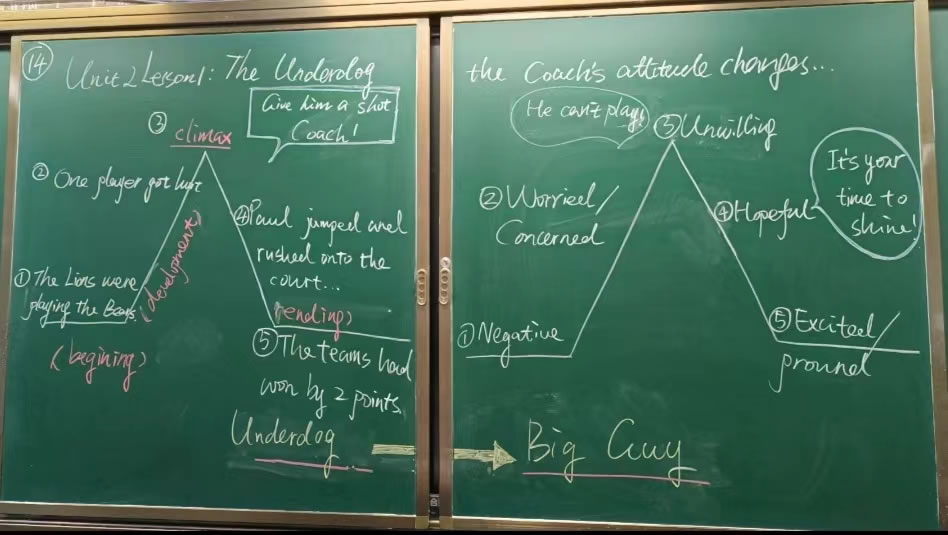 ⑭
Unit 2 Lesson 1: The Underdog
Give him a shot
Coach!
③ climax
② One player got hurt
(development)
④ Paul jumped and
rushed onto the
court...
① The Lions were
playing the Bears.
(begining)
(ending)
⑤ The teams had
won by 2 points.
Underdog
the Coach's attitude changes...
He can't play!
③ Unwilling
② Worried/
Concerned
④ Hopeful
It's your
time to
shine!
① Negative
⑤ Excited/
pround
Big Guy